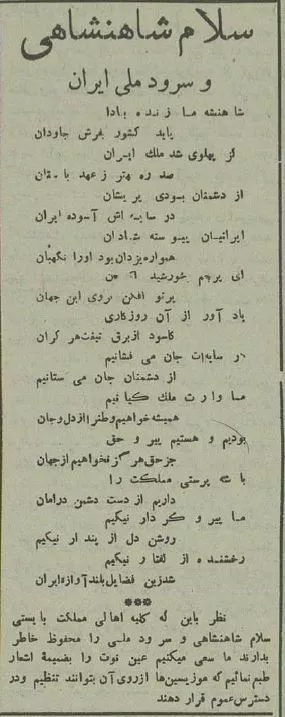 سلام شاهنشاهی
و سرود ملی ایران
شاهنشه ما زنده بادا
پاید کشور بفرش جاودان
کز پهلوی شد ملك ایران
صد ره بهتر ز عهد باستان
از دشمنان بودی پریشان
در سایه اش آسوده ایران
ایرانیان پیوسته شادان
همواره یزدان بود اورا نگهبان
ای پرچم خورشید
پرتو افکن بروی این جهان
یاد آور از آن روزگاری
کاسود از برق تیغت هر کران
در سایه‌ات جان می فشانیم
از دشمنان جان می ستانیم
ما وارث ملك کیانیم
همیشه خواهیم وطن را از دل و جان
بودیم و هستیم پیرو حق
جز حق هرگز نخواهیم از جهان
با شه پرستی مملکت را
داریم از دست دشمن در امان
ما پیرو کردار نیکیم
روشن دل از پندار نیکیم
رخشنده از گفتار نیکیم
شد زین فضایل بلند آوازه ایران
***
نظر باین که کلیه اهالی مملکت بایستی
سلام شاهنشاهی و سرود ملی را محفوظ خاطر
بدارند ما سعی میکنیم عین نوت را بضمیمهٔ اشعار
طبع نمائیم که موزیسین‌ها از روی آن بتوانند تنظیم و در
دسترس عموم قرار دهند